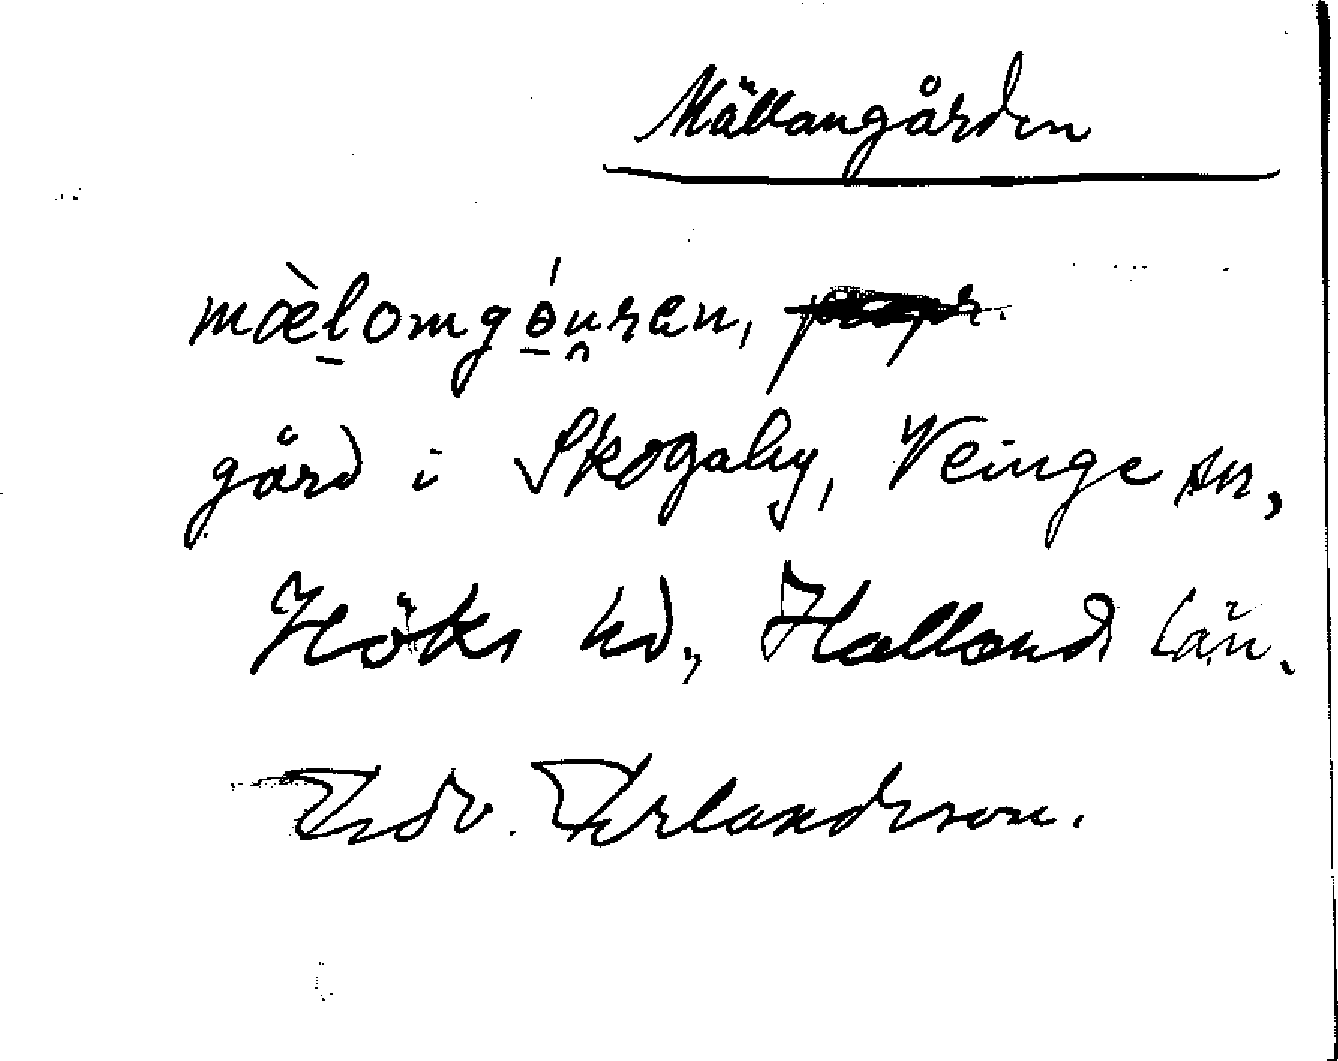 Mällangården
mœ̀l̠omgɵ̠́u̯ren,
gård i Skogaby, Veinge sn,
Höks hd., Hallands län.
Edv. Erlandsson.